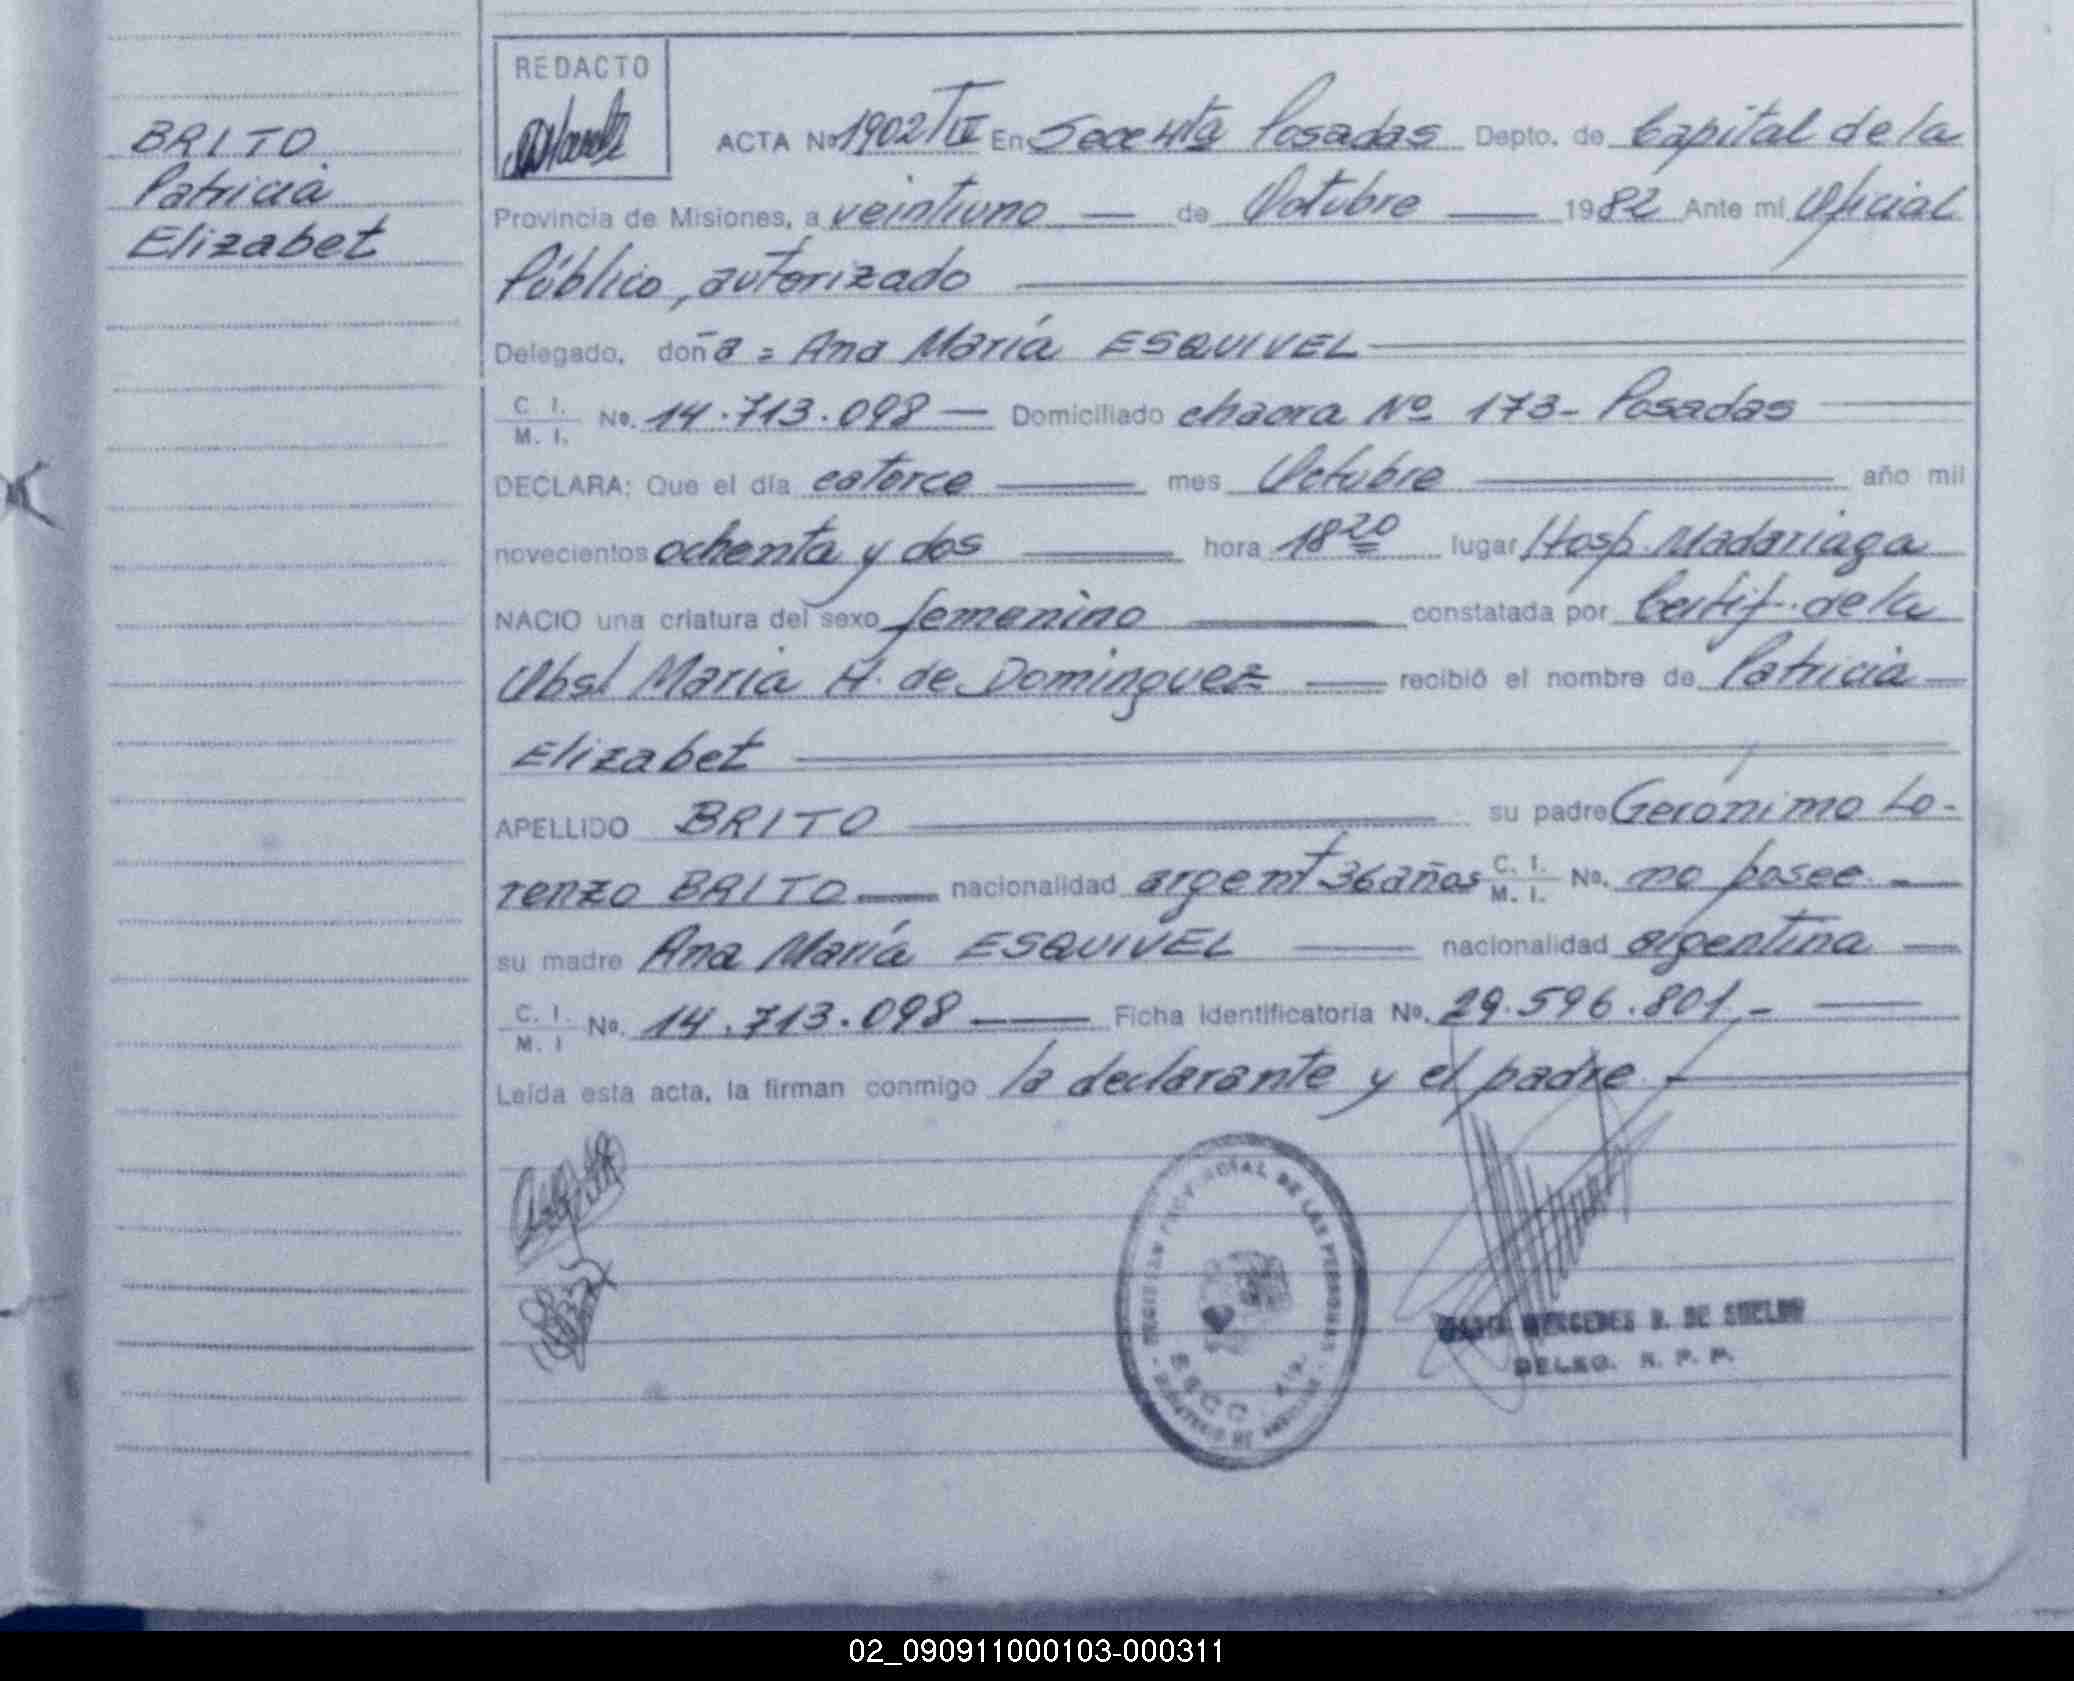 BRITO
Patricia
Elizabet
REDACTO
ACTA No 1902 TIV En Secc 4ta Posadas Depto. de Capital de la
Provincia de Misiones, a veintiuno — de Octubre — 1982 Ante mi Oficial
Público, autorizado
Delegado, doña = Ana María ESQUIVEL
C. I. M. I. No. 14.713.098 — Domiciliado chacra Nº 173 - Posadas
DECLARA: Que el día catorce — mes Octubre — año mil
novecientos ochenta y dos — hora 18 20 lugar Hosp. Madariaga
NACIO una criatura del sexo femenino — constatada por Certif. de la
Obst Maria H. de Dominguez — recibió el nombre de Patricia
Elizabet
APELLIDO BRITO — su padre Gerónimo Lo-
renzo BRITO — nacionalidad argent 36 años C. I. M. I. No. no posee. -
su madre Ana María ESQUIVEL — nacionalidad argentina —
C. I. M. I No. 14.713.098 — Ficha identificatoria No. 29.596.801.-
Leída esta acta, la firman conmigo la declarante y el padre
PROVINCIAL DE LAS PERSONAS
MERCEDES DE
DELEG. R. P. P.
02_090911000103-000311